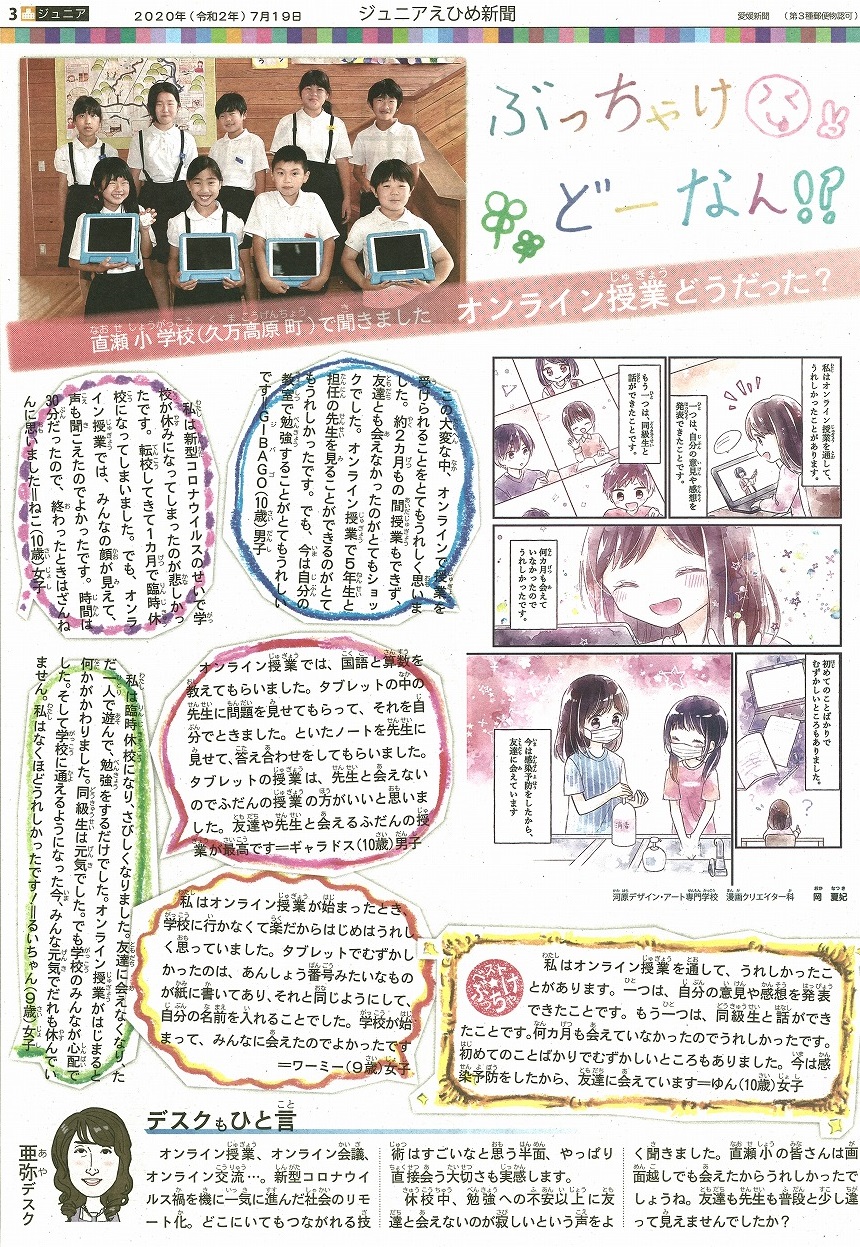 3 ジュニア
2020年（令和2年）7月19日
ジュニアえひめ新聞
愛媛新聞　（第3種郵便物認可）
ぶっちゃけ
どーなん!!
直瀬小学校（久万高原町）で聞きました　オンライン授業どうだった？
私はオンライン授業を通して、
うれしかったことがあります。
一つは、自分の意見や感想を
発表できたことです。
もう一つは、同級生と
話ができたことです。
何カ月も会えて
いなかったので
うれしかったです。
初めてのことばかりで
むずかしいところもありました。
今は感染予防をしたから、
友達に会えています
消毒
河原デザイン・アート専門学校　漫画クリエイター科　岡　夏妃
この大変な中、オンラインで授業を
受けられることをとてもうれしく思いま
した。約2カ月もの間授業もできず、
友達とも会えなかったのがとてもショッ
クでした。オンライン授業で5年生と
担任の先生を見ることができるのがとて
もうれしかったです。でも、今は自分の
教室で勉強することがとてもうれしい
です＝GIBAGO（10歳）男子
私は新型コロナウイルスのせいで学
校が休みになってしまったのが悲しかっ
たです。転校してきて1カ月で臨時休
校になってしまいました。でも、オンラ
イン授業では、みんなの顔が見えて、
声も聞こえたのでよかったです。時間は
30分だったので、終わったときはざんね
んに思いました＝ねこ（10歳）女子
オンライン授業では、国語と算数を
教えてもらいました。タブレットの中の
先生に問題を見せてもらって、それを自
分でときました。といたノートを先生に
見せて、答え合わせをしてもらいました。
タブレットの授業は、先生と会えない
のでふだんの授業の方がいいと思いま
した。友達や先生と会えるふだんの授
業が最高です＝ギャラドス（10歳）男子
私は臨時休校になり、さびしくなりました。友達に会えなくなり、た
だ一人で遊んで、勉強をするだけでした。オンライン授業がはじまると
何かがかわりました。同級生は元気でした。でも学校のみんなが心配で
した。そして学校に通えるようになった今、みんな元気でだれも休んでい
ません。私はなくほどうれしかったです！＝るいちゃん（9歳）女子
私はオンライン授業が始まったとき、
学校に行かなくて楽だからはじめはうれし
く思っていました。タブレットでむずかし
かったのは、あんしょう番号みたいなもの
が紙に書いてあり、それと同じようにして、
自分の名前を入れることでした。学校が始
まって、みんなに会えたのでよかったです
＝ワーミー（9歳）女子
ベスト
ぶっ★ちゃけ
私はオンライン授業を通して、うれしかったこ
とがあります。一つは、自分の意見や感想を発表
できたことです。もう一つは、同級生と話ができ
たことです。何カ月も会えていなかったのでうれしかったです。
初めてのことばかりでむずかしいところもありました。今は感
染予防をしたから、友達に会えています＝ゆん（10歳）女子
デスクもひと言
亜弥デスク
オンライン授業、オンライン会議、
オンライン交流…。新型コロナウイ
ルス禍を機に一気に進んだ社会のリモ
ート化。どこにいてもつながれる技
術はすごいなと思う半面、やっぱり
直接会う大切さも実感します。
休校中、勉強への不安以上に友
達と会えないのが寂しいという声をよ
く聞きました。直瀬小の皆さんは画
面越しでも会えたからうれしかったで
しょうね。友達も先生も普段と少し違
って見えませんでしたか？